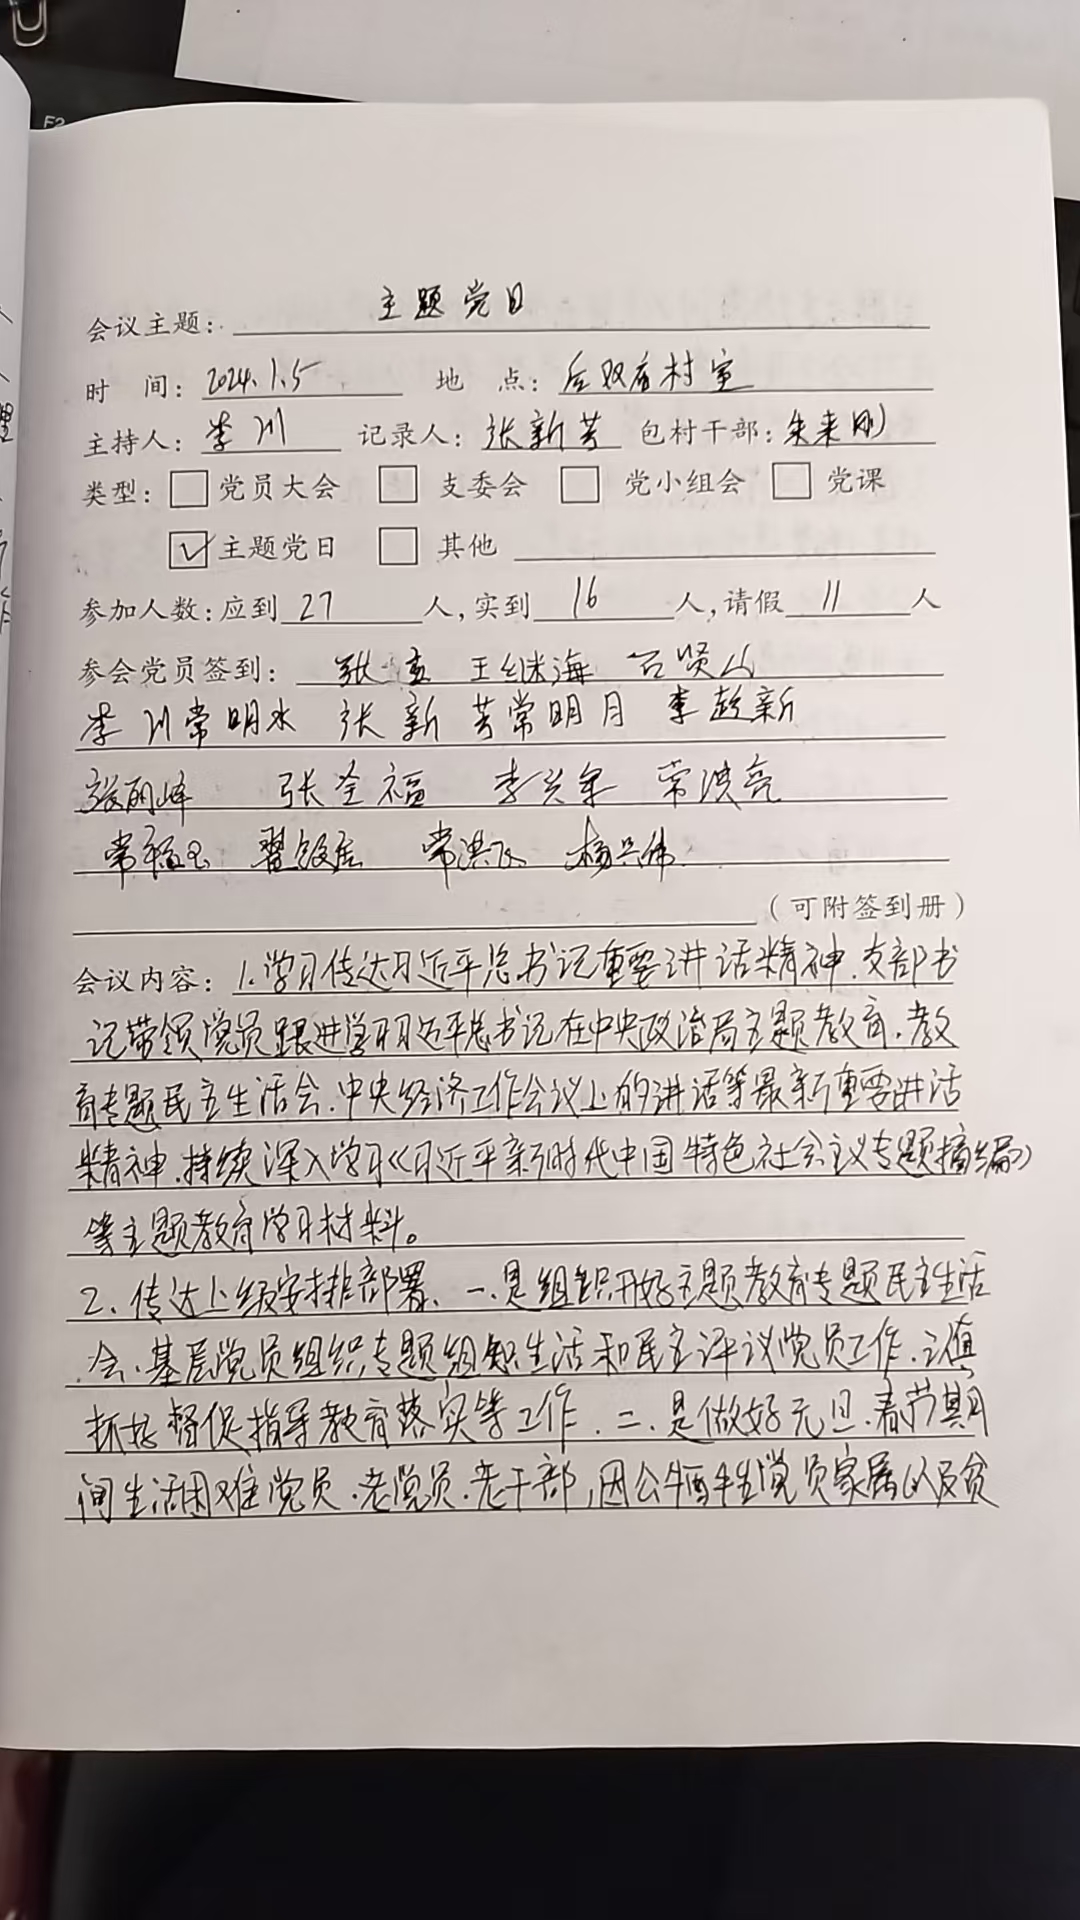 F2
会议主题: 主题党日
时 间: 2024.1.5 地 点: 后双庙村室
主持人: 李川 记录人: 张新芳 包村干部: 朱来刚
类型: 党员大会 支委会 党小组会 党课
✓ 主题党日 其他
参加人数: 应到 27 人, 实到 16 人, 请假 11 人
参会党员签到: 张 王继海 石贤山
李川 常明水 张新芳 常明月 李趁新
张全福 李兴 常洪亮
常福 常洪飞 杨兴伟
（可附签到册）
会议内容: 1.学习传达习近平总书记重要讲话精神.支部书
记带领党员跟进学习习近平总书记在中央政治局主题教育.教
育专题民主生活会.中央经济工作会议上的讲话等最新重要讲话
精神.持续深入学习《习近平新时代中国特色社会主义专题摘编》
等主题教育学习材料。
2、传达上级安排部署、一.是组织开好主题教育专题民主生活
会.基层党员组织专题组织生活和民主评议党员工作.认真
抓好督促指导教育落实等工作.二、是做好元旦.春节期
间生活困难党员.老党员.老干部,因公牺牲党员家属以及贫